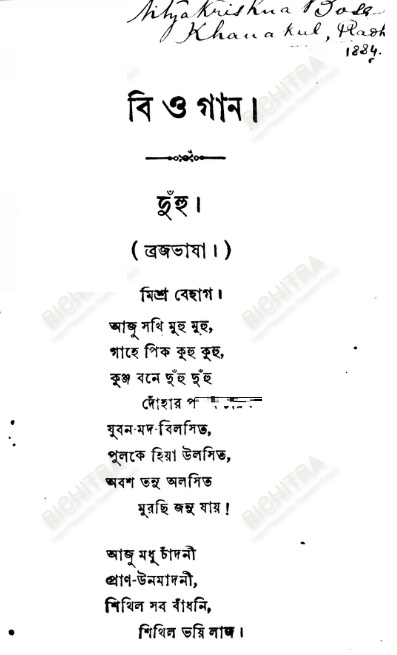 Nityakrishna Bose
Khanakul,
1884.
বি ও গান।
দুঁহু।
(ব্রজভাষা।)
মিশ্র বেহাগ।
আজু সখি মুহু মুহু,
গাহে পিক কুহু কুহু,
কুঞ্জ বনে দুঁহু দুঁহু
দোঁহার প
যুবন-মদ-বিলসিত,
পুলকে হিয়া উলসিত,
অবশ তনু অলসিত
মুরছি জনু যায়!
আজু মধু চাঁদনী
প্রাণ-উনমাদনী,
শিথিল সব বাঁধনি,
শিথিল ভয়ি লাজ।
BICHITRA
BICHITRA
BICHITRA
BICHITRA
BICHITRA
BICHITRA